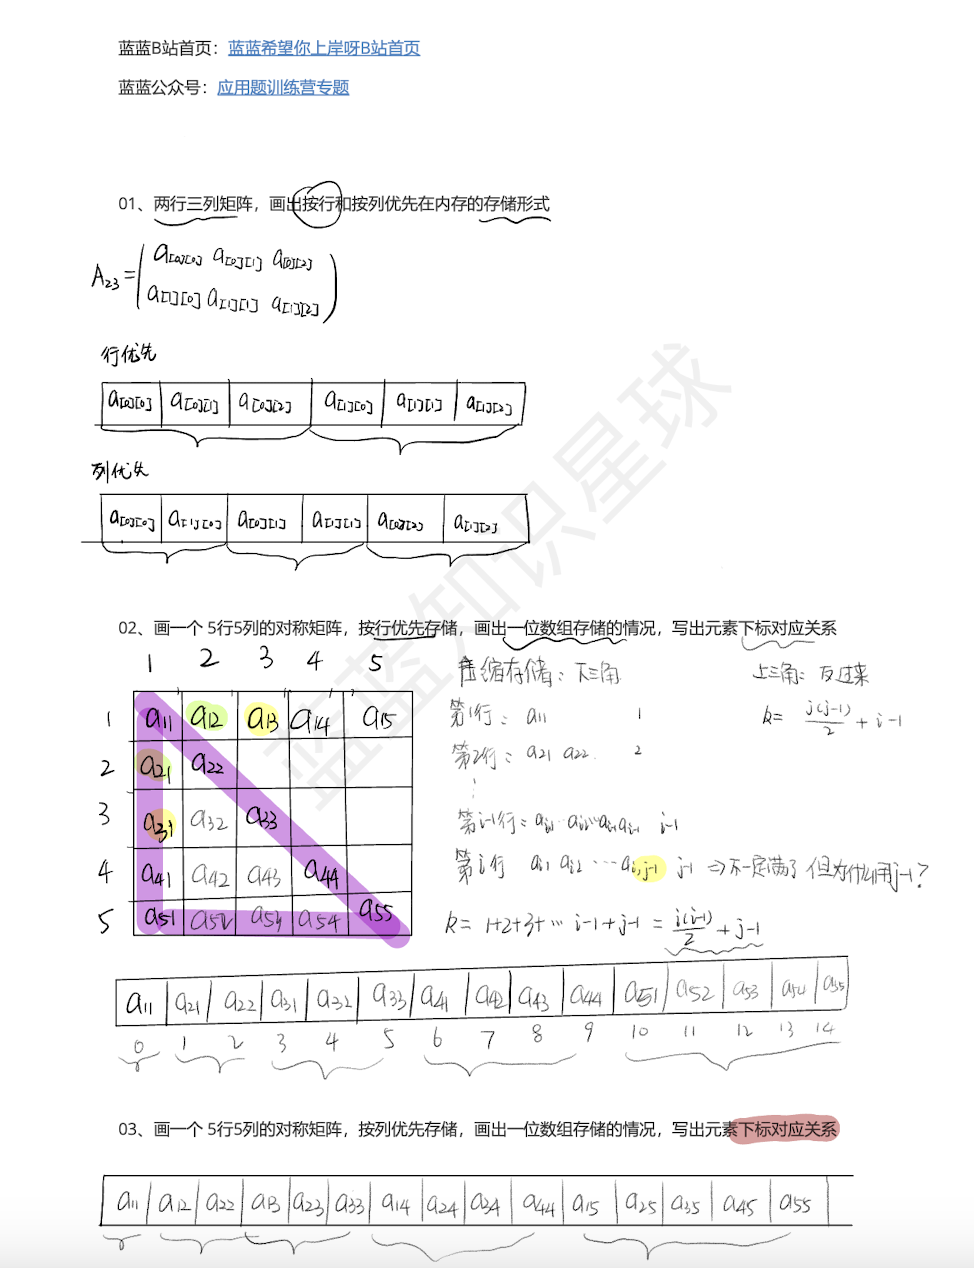 蓝蓝B站首页：蓝蓝希望你上岸呀B站首页
蓝蓝公众号：应用题训练营专题
01、两行三列矩阵，画出按行和按列优先在内存的存储形式
A23 = ( a[0][0] a[0][1] a[0][2]
a[1][0] a[1][1] a[1][2] )
行优先
a[0][0] a[0][1] a[0][2] a[1][0] a[1][1] a[1][2]
列优先
a[0][0] a[1][0] a[0][1] a[1][1] a[0][2] a[1][2]
02、画一个 5行5列的对称矩阵，按行优先存储，画出一位数组存储的情况，写出元素下标对应关系
1 2 3 4 5
1 a11 a12 a13 a14 a15
2 a21 a22
3 a31 a32 a33
4 a41 a42 a43 a44
5 a51 a52 a53 a54 a55
压缩存储：下三角
第1行： a11 1
第2行： a21 a22 2
⋮
第i-1行： i-1
第i行 ai1 ai2 … ai,j-1 j-1 ⇒不一定满了 但为什么用j-1？
k = 1+2+3+… i-1+j-1 = i(i-1)/2 + j-1
上三角：反过来
k = j(j-1)/2 + i-1
a11 a21 a22 a31 a32 a33 a41 a42 a43 a44 a51 a52 a53 a54 a55
0 1 2 3 4 5 6 7 8 9 10 11 12 13 14
03、画一个 5行5列的对称矩阵，按列优先存储，画出一位数组存储的情况，写出元素下标对应关系
a11 a12 a22 a13 a23 a33 a14 a24 a34 a44 a15 a25 a35 a45 a55
蓝蓝知识星球